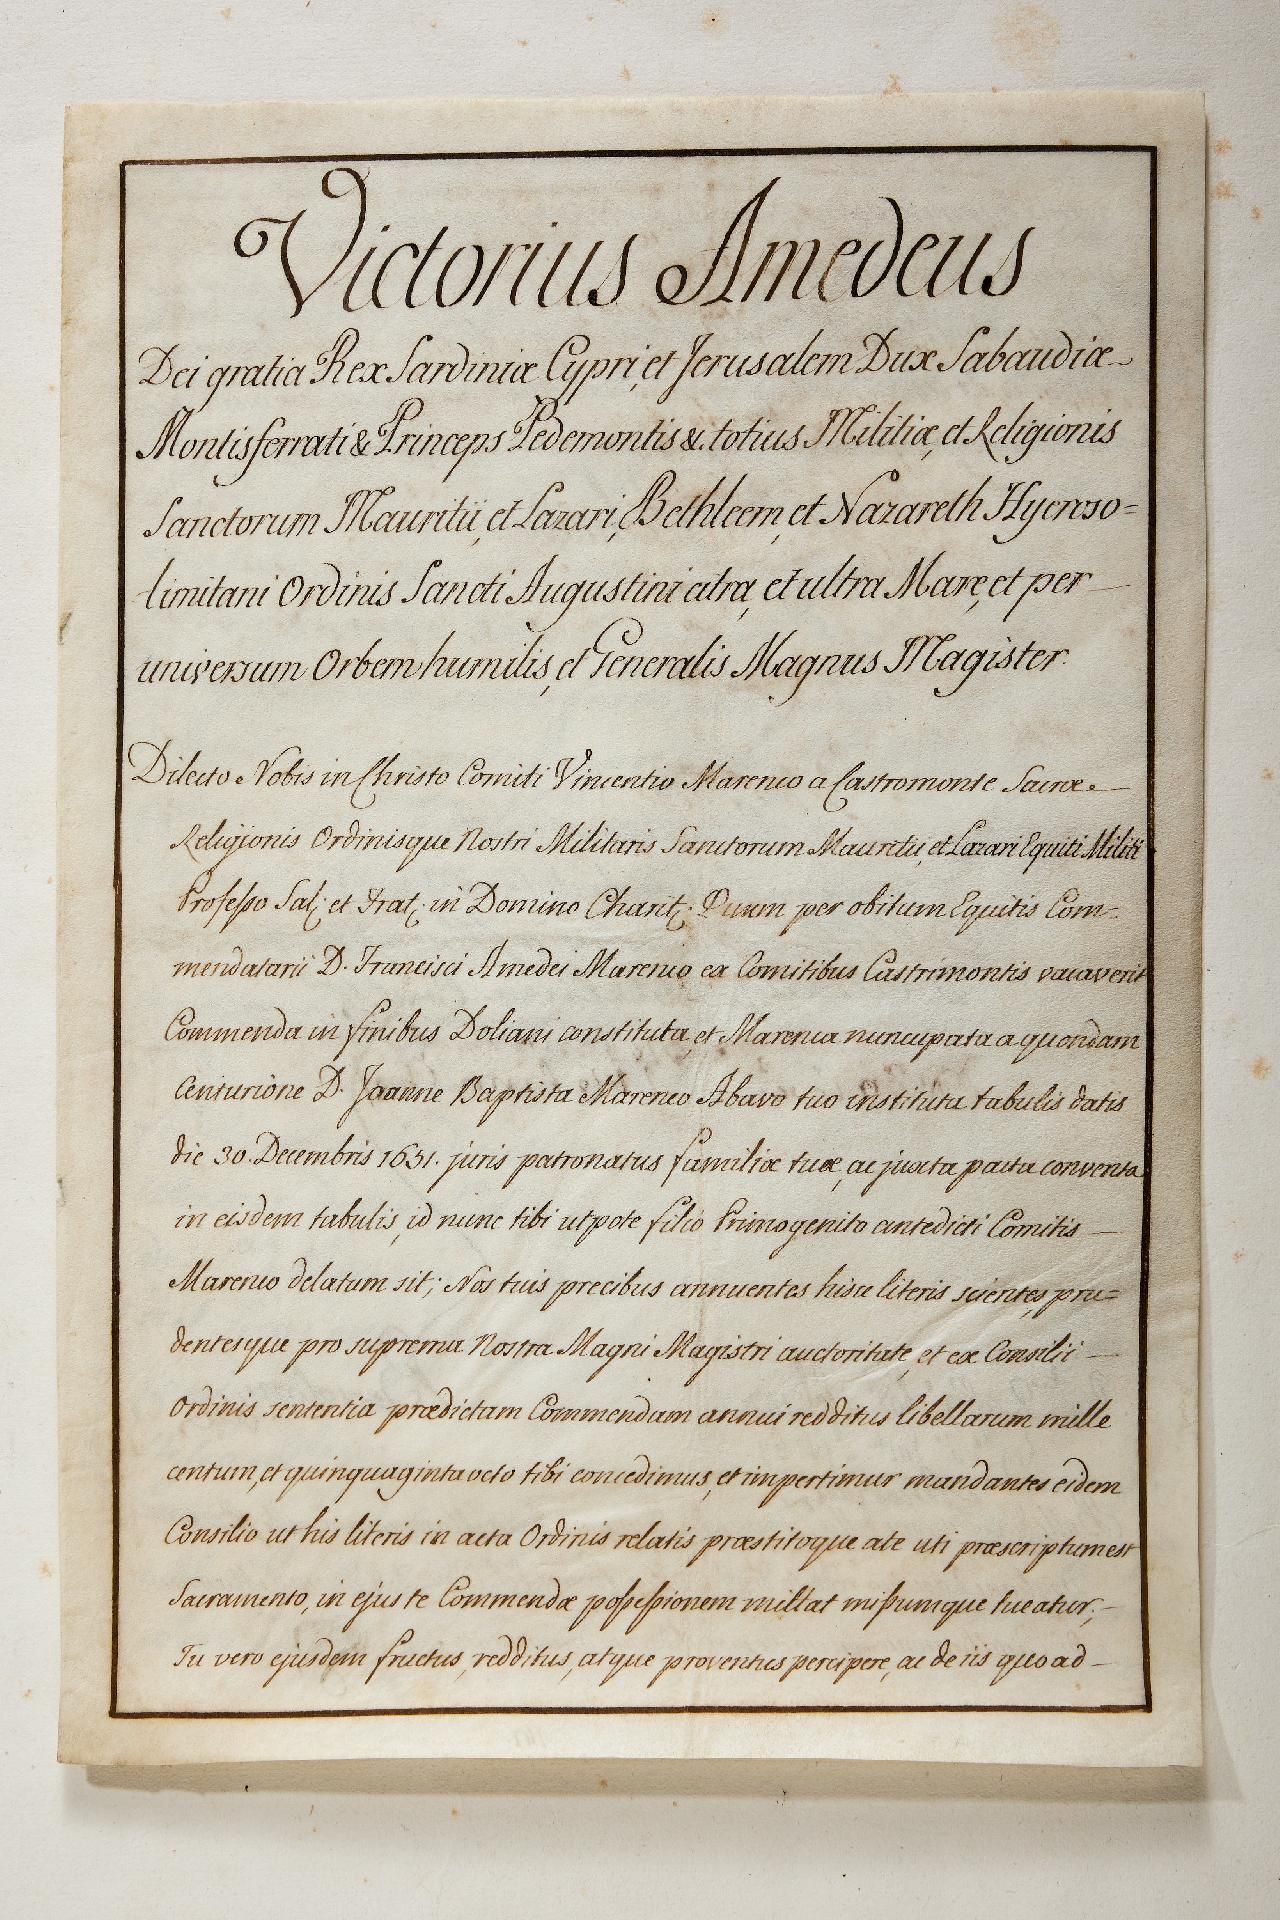 Victorius Amedeus
Dei gratia Rex Sardiniæ Cypri, et Jerusalem Dux Sabaudiæ
Montisferrati & Princeps Pedemontis &. totius Militiæ, et Religionis
Sanctorum Mauritii, et Lazari, Bethleem, et Nazareth Hyeroso=
limitani Ordinis Sancti Augustini citra, et ultra Mare, et per
universum Orbem humilis, et Generalis Magnus Magister.
Dilecto Nobis in Christo Comiti Vincentio Marenco a Castromonte Sacræ
Religionis Ordinisque Nostri Militaris Sanctorum Mauritii, et Lazari Equiti Militi
Professo Sal: et Frat: in Domino Charit: Quum per obitum Equitis Com-
mendatarii D. Francisci Amedei Marenco ex Comitibus Castrimontis vacaverit
Commenda in finibus Doliani constituta, et Marenca nuncupata a quondam
Centurione D. Joanne Baptista Marenco Abavo tuo instituta tabulis datis
die 30. Decembris 1651. juris patronatus familiæ tuæ, ac juxta pacta conventa
in eisdem tabulis, id nunc tibi utpote filio Primogenito antedicti Comitis
Marenco delatum sit; Nos tuis precibus annuentes hisce literis scientes, pru=
dentesque pro suprema Nostra Magni Magistri auctoritate, et ex Consilii
Ordinis sententia prædictam Commendam annui redditus libellarum mille
centum, et quinquaginta octo tibi concedimus, et impertimur mandantes eidem
Consilio ut his literis in acta Ordinis relatis præstitoque a te uti præscriptum est
Sacramento, in ejus te Commendæ possessionem mittat missumque tueatur;
Tu vero ejusdem fructus, redditus, atque proventus percipere, ac de iis quoad